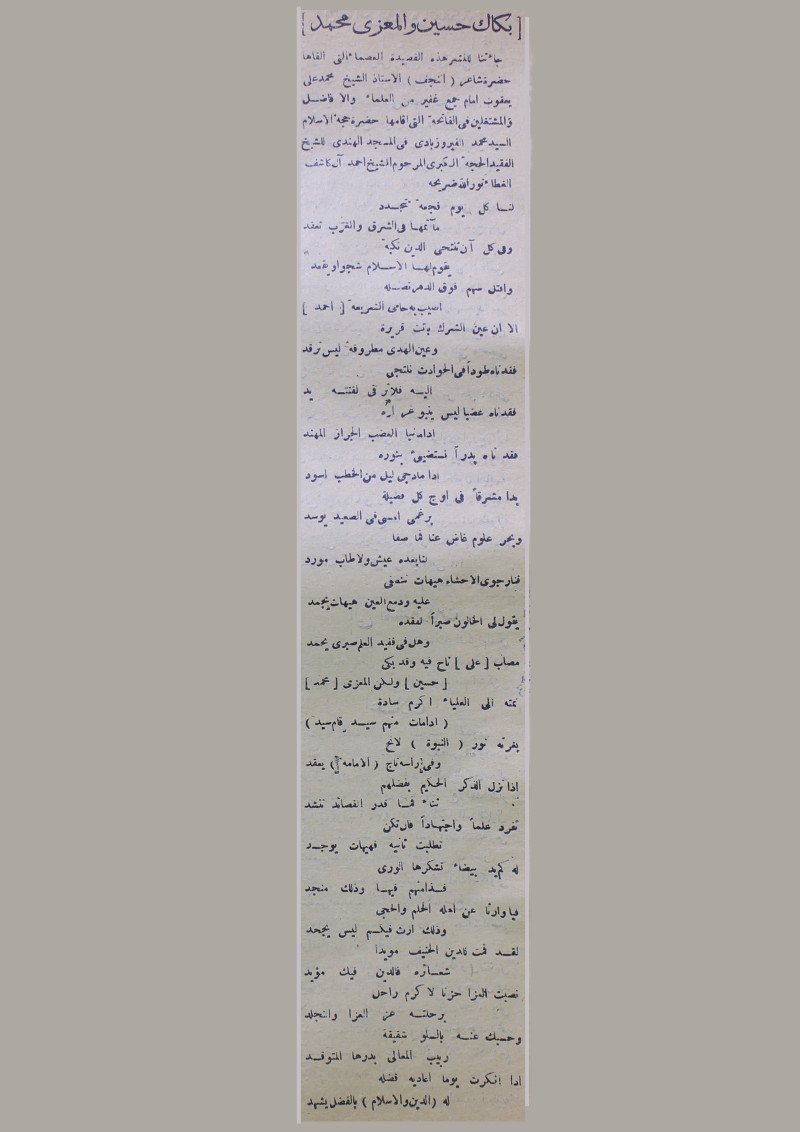 [ بكاك حسين والمعزى محمد ]
جائتنا للنشر هذه القصيدة العصماء التى القاها
حضرة شاعر ( النجف ) الاستاذ الشيخ محمد على
يعقوب امام جمع غفير من العلماء والافاضل
والمشتغلين فى الفاتحة التى اقامها حضرة حجة الاسلام
السيد محمد الفيروزبادى فى المسجد الهندى للشيخ
الفقيد الحجة الكبرى المرحوم الشيخ احمد آل كاشف
الغطاء نور الله ضريحه
لنا كل يوم فجعة تتجدد
مآتمها فى الشرق والغرب تعقد
وفى كل آن تنتحى الدين نكبة
يقوم لها الاسلام شجوا ويقعد
واقتل سهم فوق الدهر نصله
اصيب به حامى الشريعة [ احمد ]
الا ان عين الشرك باتت قريرة
وعين الهدى مطروفة ليس ترقد
فقدناه طوداً فى الحوادث نلتجى
اليه فلا ترقى لقنته يد
فقدناه عضبا ليس ينبو غراره
اذا مانبا العضب الجراز المهند
فقدناه بدراً نستضيئ بنوره
اذا مادجى ليل من الخطب اسود
بدا مشرقاً فى اوج كل فضيلة
برغمى امسى فى الصعيد يوسد
وبحر علوم غاض عنا فما صفا
لنا بعده عيش ولا طاب مورد
فنار جوى الاحشاء هيهات تنطفى
عليه ودمع العين هيهات يجمد
يقول لى الخالون صبراً لفقده
وهل فى فقيد العلم صبرى يحمد
مصاب [ على ] ناح فيه وقد بكى
[ حسين ] ولكن المعزى [ محمد ]
نمته الى العلياء اكرم سادة
( اذامات منهم سيد قام سيد )
بغرته نور ( النبوة ) لائح
وفى راسه تاج ( الامامة ) يعقد
إذا نزل الذكر الحكيم بفضلهم
ثناء فما قدر القصائد تنشد
تفرد علماً واجتهاداً فان تكن
تطلبت ثانيه فهيهات يوجد
له كم يد بيضاء تشكرها الورى
فذا متهم فيها وذلك منجد
فيا وارثا عن اهله الحلم والحجى
وذلك ارث فيكم ليس يجحد
لقد قمت للدين الحنيف مويدا
شعائره فالدين فيك مؤيد
نصبت العزا حزنا لاكرم راحل
برحلته عز العزا والتجلد
وحسبك عنه بالسلو شقيقه
ربيب المعالى بدرها المتوقد
اذا انكرت يوما اعاديه فضله
له ( الدين والاسلام ) بالفضل يشهد